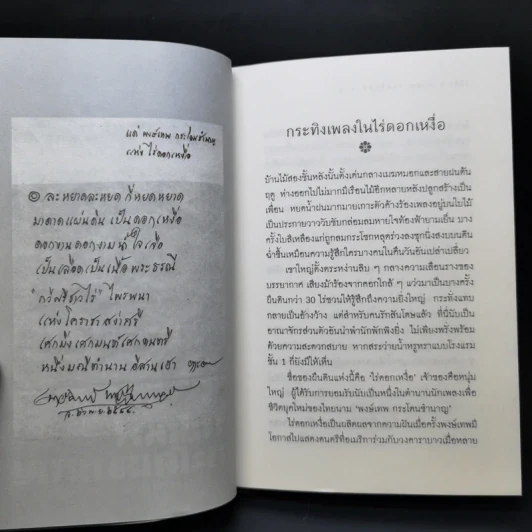 แด่ พงษ์เทพ กระโดนชำนาญ
แห่ง ไร่ดอกเหงื่อ
๏ ละหยาดละหยด ก็หยดหยาด
มาดาดแผ่นดิน เป็นดอกเหงื่อ
ดอกงานดอกงาม น้ำใจเชื่อ
เป็นเลือดเป็นเนื้อ พระธรณี
"กวีศรีชาวไร่" ไพรพนา
แห่งโคราชา สง่าศรี
เสกมิ่ง เสกมนต์ เสกดนตรี
หนึ่งมณีตำนาน อีสานเฮา
กระทิงเพลงในไร่ดอกเหงื่อ
บ้านไม้สองชั้นหลังนั้นตั้งเด่นกลางเมฆหมอกและสายฝนต้น
ฤดู ห่างออกไปไม่มากมีเรือนไม้อีกหลายหลังปลูกสร้างเป็น
เพื่อน หยดน้ำฝนมากมายเกาะตัวค้างร้องเพลงอยู่บนใบไม้
เป็นประกายวาววับขับกล่อมลมหายใจท้องฟ้ายามเย็น บาง
ครั้งใบสีเหลืองแก่ถูกลมกระโชกหลุดร่วงลงซุกนิ่งสงบบนดิน
ฉ่ำชื้นเหมือนความรู้สึกใครบางคนในคืนวันอันเปล่าเปลี่ยว
เขาใหญ่ตั้งตระหง่านสีม ๆ กลางความเลือนรางของ
บรรยากาศ เสียงม้าร้องจากคอกใกล้ ๆ แว่วมาเป็นบางครั้ง
ผืนดินกว่า 30 ไร่ชวนให้รู้สึกถึงความยิ่งใหญ่ กระทั่งแทบ
กลายเป็นอ้างว้าง แต่สำหรับคนรักสันโดษแล้ว ที่นี่นับเป็น
อาณาจักรส่วนตัวอันน่าพำนักพักพิงยิ่ง ไม่เพียงพรั่งพร้อม
ด้วยความสะดวกสบาย หากสระว่ายน้ำหรูหราแบบโรงแรม
ชั้น 1 ก็ยังมีให้เห็น
ชื่อของผืนดินแห่งนี้คือ 'ไร่ดอกเหงื่อ' เจ้าของคือหนุ่ม
ใหญ่ ผู้ได้รับการยอมรับนับเป็นหนึ่งในตำนานนักเพลงเพื่อ
ชีวิตยุคใหม่ของไทยนาม 'พงษ์เทพ กระโดนชำนาญ'
ไร่ดอกเหงื่อเป็นผลิตผลจากความฝันเมื่อครั้งพงษ์เทพมี
โอกาสไปแสดงดนตรีที่อเมริการ่วมกับวงคาราบาวเมื่อหลาย